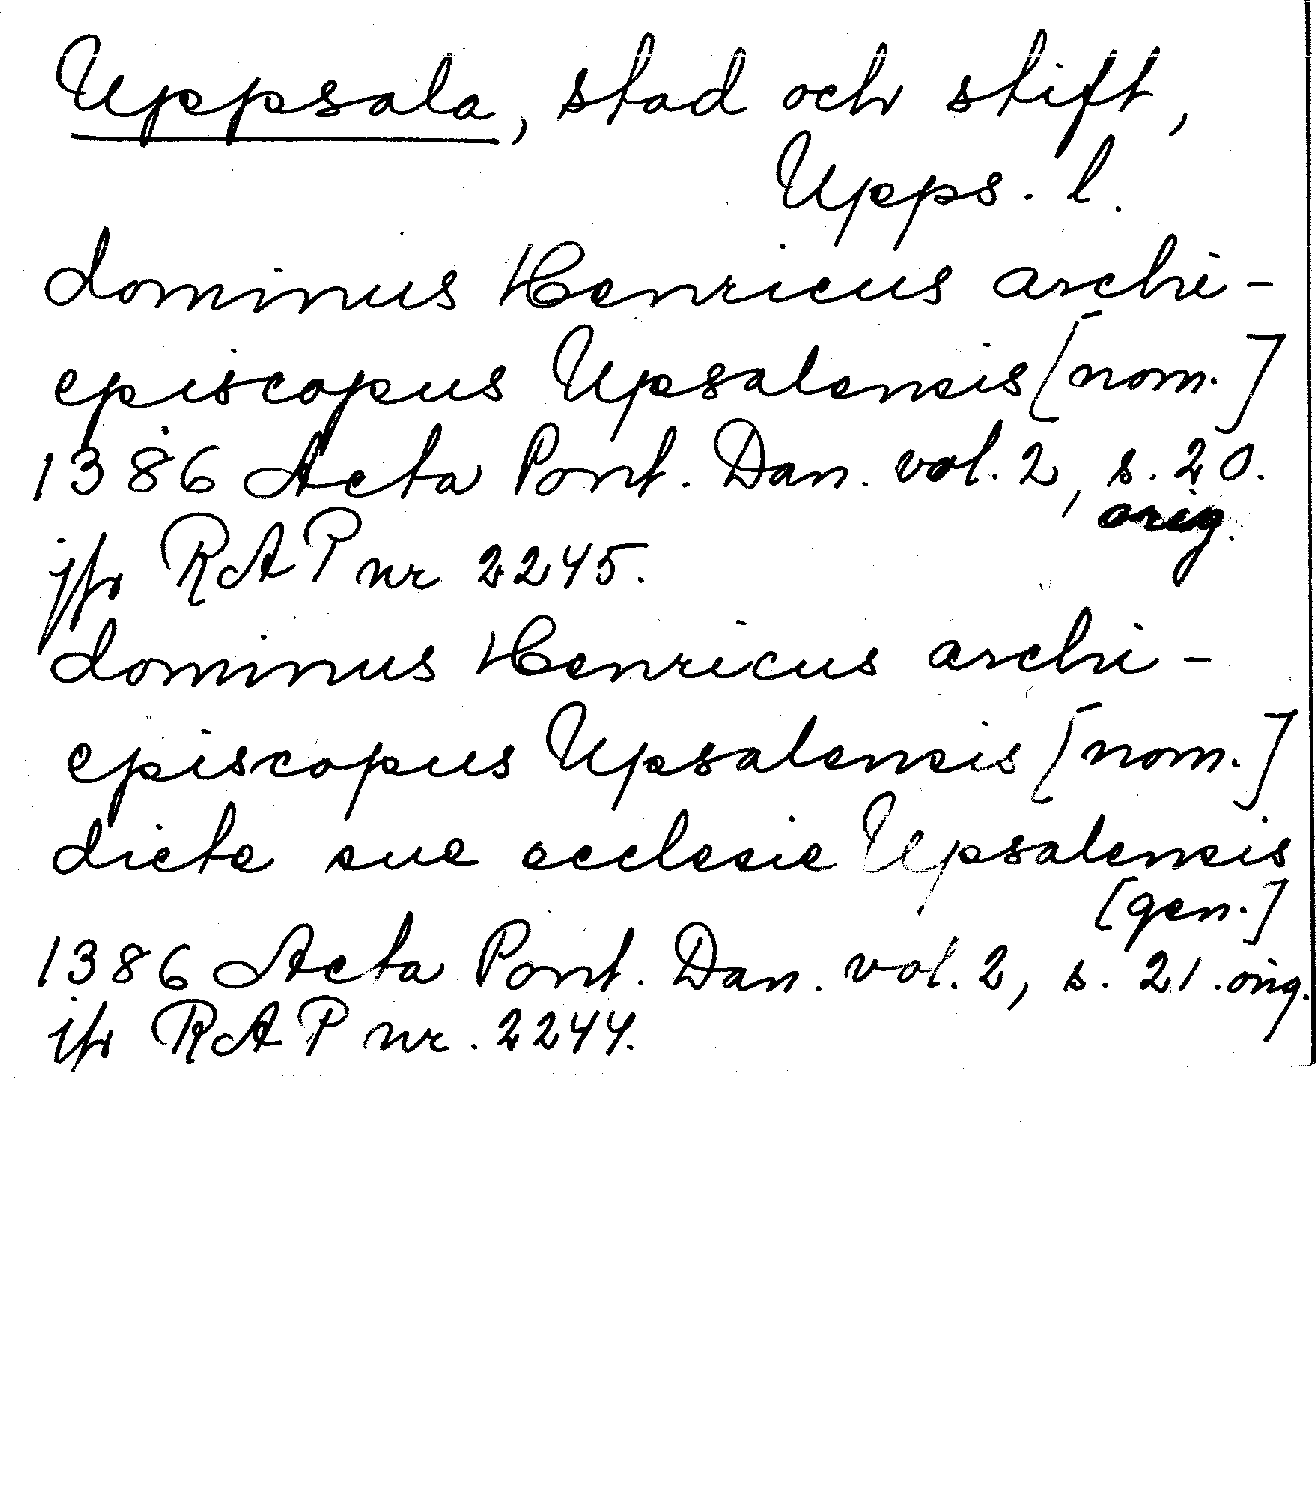 Uppsala, stad och stift,
Upps. l.
dominus Henricus archi-
episcopus Upsalensis [nom.]
1386 Acta Pont. Dan. vol. 2, s. 20.
orig.
jfr RAP nr 2245.
dominus Henricus archi-
episcopus Upsalensis [nom.]
dicte sue ecclesie Upsalensis
[gen.]
1386 Acta Pont. Dan. vol. 2, s. 21. orig.
jfr RAP nr. 2244.